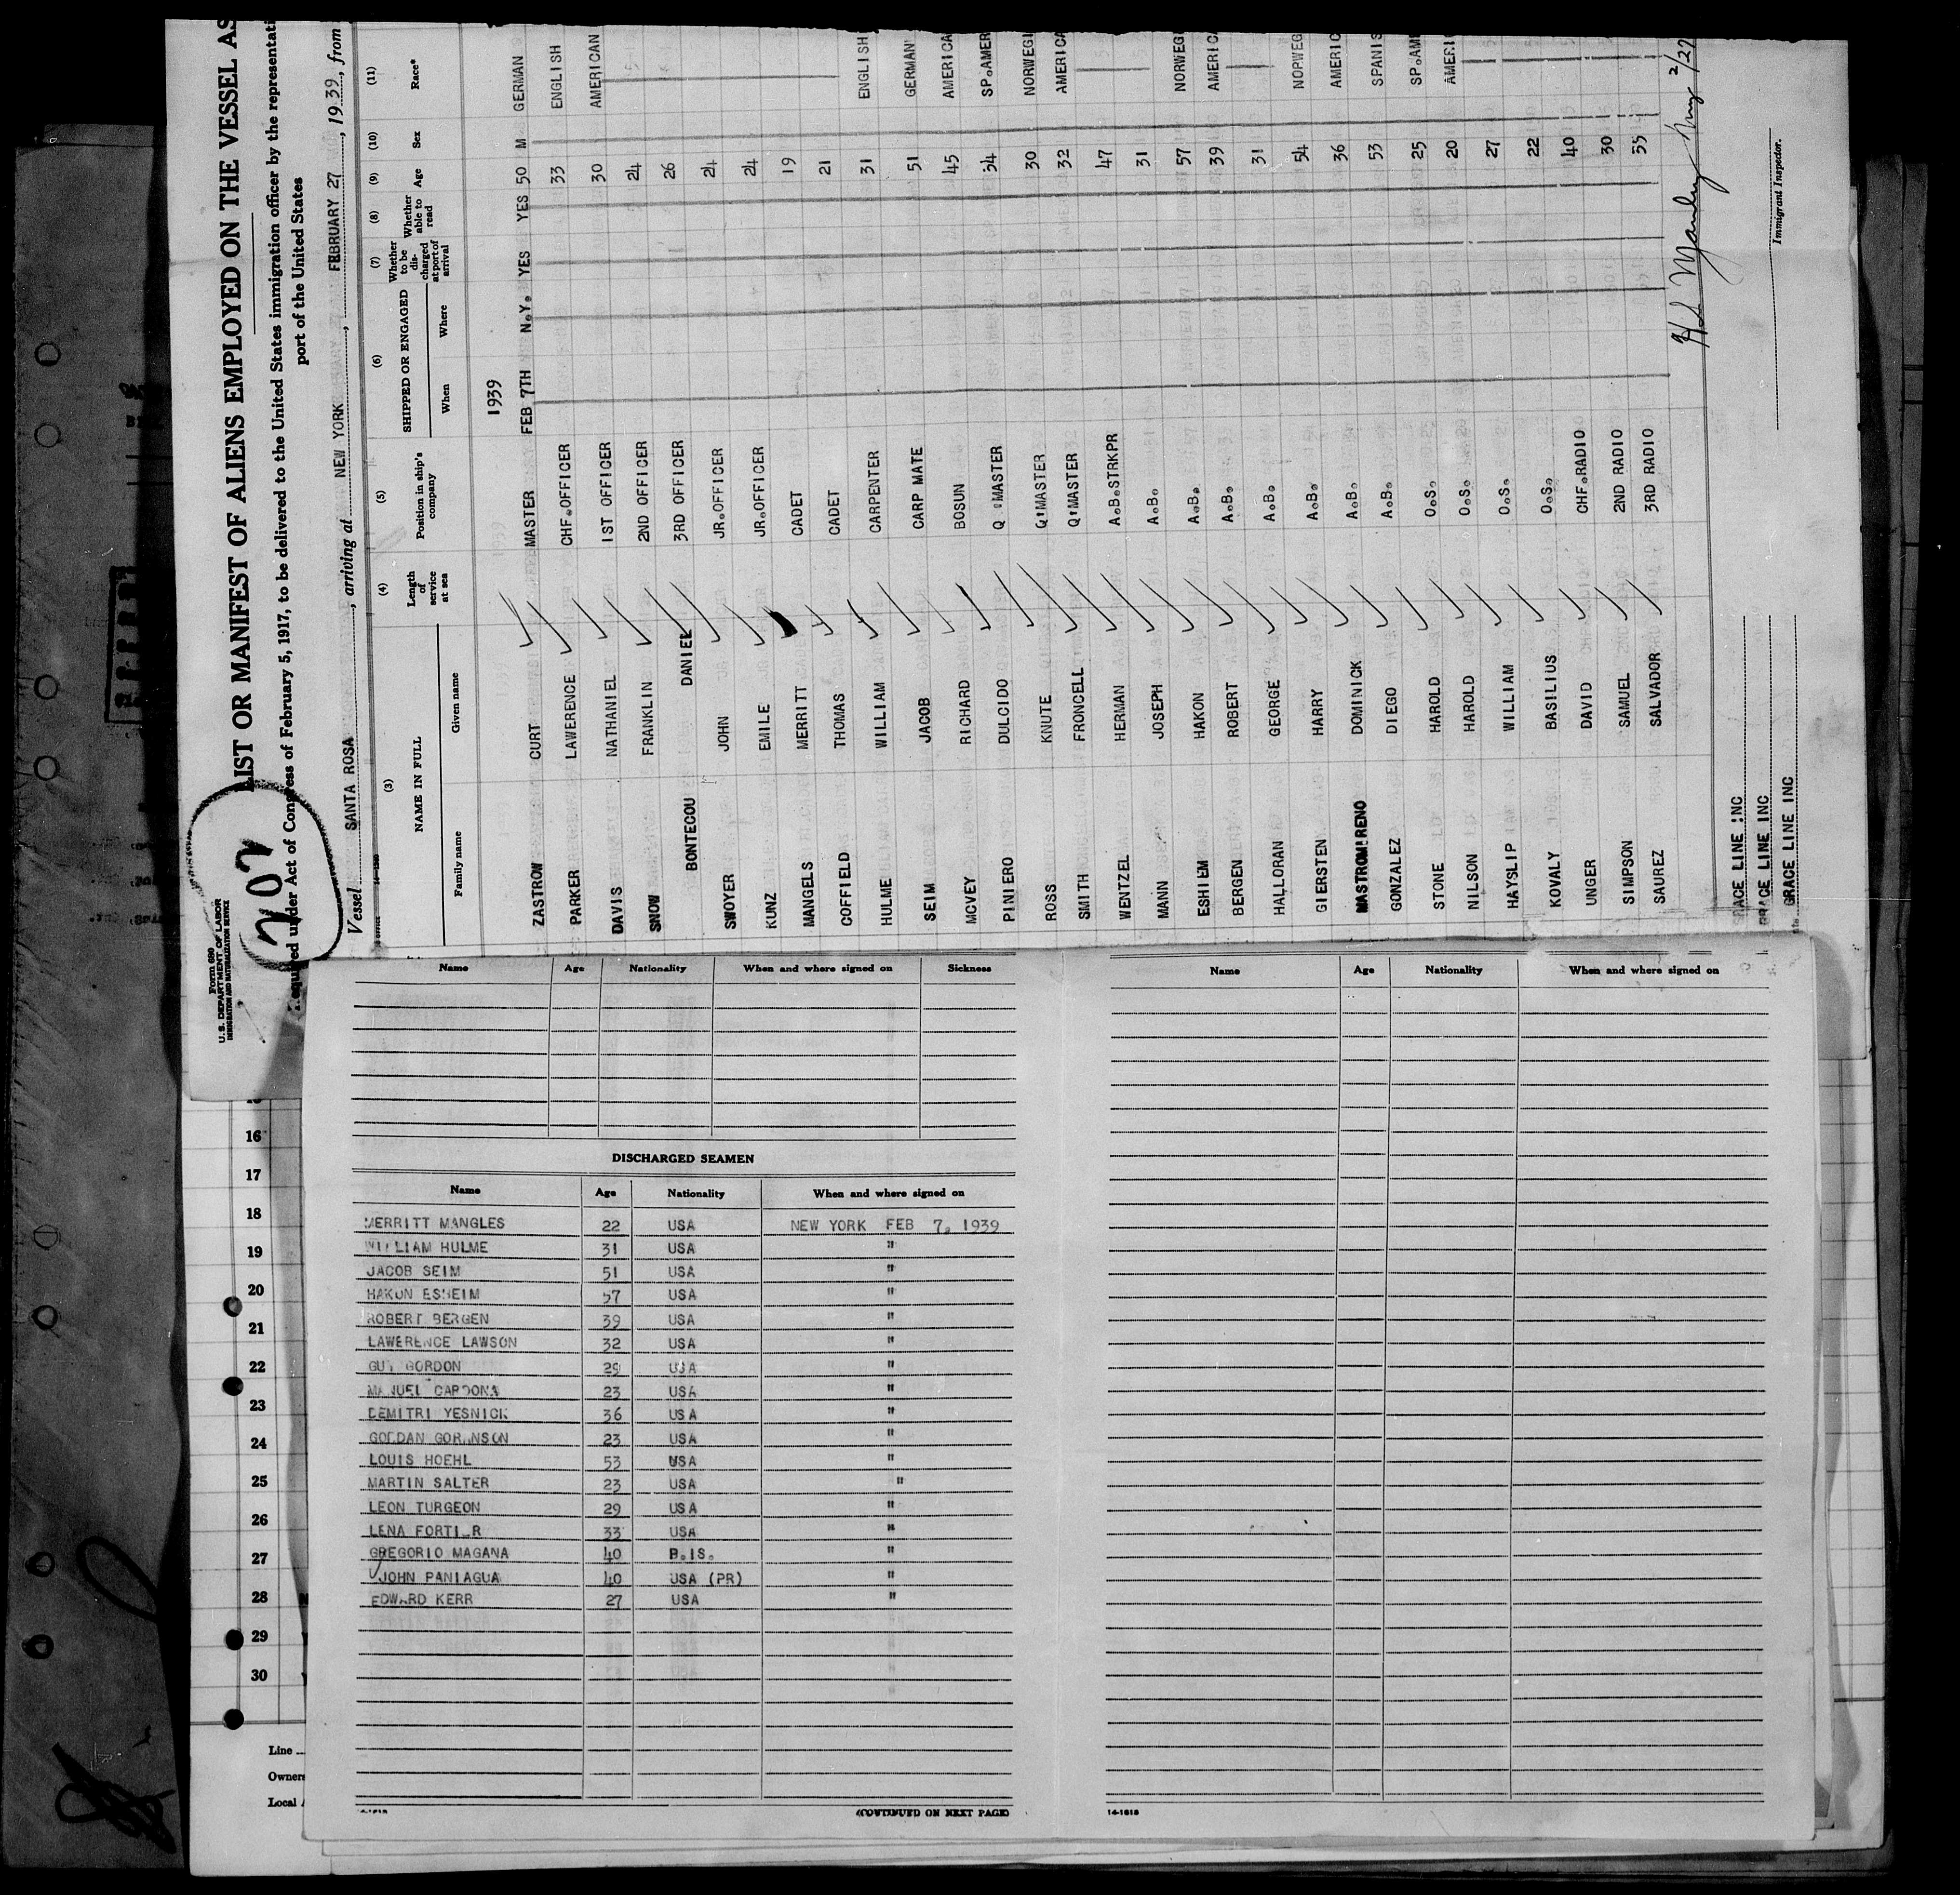 Form 680
U.S. DEPARTMENT OF LABOR
IMMIGRATION AND NATURALIZATION SERVICE
202
LIST OR MANIFEST OF ALIENS EMPLOYED ON THE VESSEL AS
Required under Act of Congress of February 5, 1917, to be delivered to the United States immigration officer by the representati
port of the United States
Vessel SANTA ROSA, arriving at NEW YORK, FEBRUARY 27, 1939, from
(3) (4) (5) (6) (7) (8) (9) (10) (11)
NAME IN FULL Length of service at sea Position in ship's company SHIPPED OR ENGAGED Whether to be discharged at port of arrival Whether able to read Age Sex Race*
Family name Given name When Where
1939
ZASTROW CURT MASTER FEB 7TH N.Y. YES YES 50 M GERMAN
PARKER LAWERENCE CHF.OFFICER 33 ENGLISH
DAVIS NATHANIEL 1ST OFFICER 30 AMERICAN
SNOW FRANKLIN 2ND OFFICER 24
BONTECOU DANIEL 3RD OFFICER 26
SWOYER JOHN JR.OFFICER 24
KUNZ EMILE JR.OFFICER 24
MANGELS MERRITT CADET 19
COFFIELD THOMAS CADET 21
HULME WILLIAM CARPENTER 31 ENGLISH
SEIM JACOB CARP MATE 51 GERMAN
MCVEY RICHARD BOSUN 45 AMERICA
PINIERO DULCIDO Q'MASTER 34 SP.AMER
ROSS KNUTE Q'MASTER 30 NORWEGI
SMITH FRONCELL Q'MASTER 32 AMERICA
WENTZEL HERMAN A.B.STRKPR 47
MANN JOSEPH A.B. 31
ESHIEM HAKON A.B. 57 NORWEGI
BERGEN ROBERT A.B. 39 AMERIC
HALLORAN GEORGE A.B. 31
GIERSTEN HARRY A.B. 54 NORWEG
MASTROMIRENO DOMINICK A.B. 36 AMERIC
GONZALEZ DIEGO A.B. 53 SPANIS
STONE HAROLD O.S. 25 SP.AM
NILSON HAROLD O.S. 20 AMERI
HAYSLIP WILLIAM O.S. 27
KOVALY BASILIUS O.S. 22
UNGER DAVID CHF.RADIO 40
SIMPSON SAMUEL 2ND RADIO 30
SAUREZ SALVADOR 3RD RADIO 33
2/27
GRACE LINE INC
GRACE LINE INC
GRACE LINE INC
Immigrant Inspector.
Name Age Nationality When and where signed on Sickness
DISCHARGED SEAMEN
Name Age Nationality When and where signed on
MERRITT MANGLES 22 USA NEW YORK FEB 7. 1939
WILLIAM HULME 31 USA "
JACOB SEIM 51 USA "
HAKON ESHEIM 57 USA "
ROBERT BERGEN 39 USA "
LAWERENCE LAWSON 32 USA "
GUY GORDON 29 USA "
MANUEL CARDONA 23 USA "
DEMITRI YESNICK 36 USA "
GOLDAN GORANSON 23 USA "
LOUIS HOEHL 53 USA "
MARTIN SALTER 23 USA "
LEON TURGEON 29 USA "
LENA FORTIER 33 USA "
GREGORIO MAGANA 40 P.IS. "
JOHN PANIAGUA 40 USA (PR) "
EDWARD KERR 27 USA "
(CONTINUED ON NEXT PAGE)
Name Age Nationality When and where signed on
14-1618
16
17
18
19
20
21
22
23
24
25
26
27
28
29
30
Line
Owners
Local